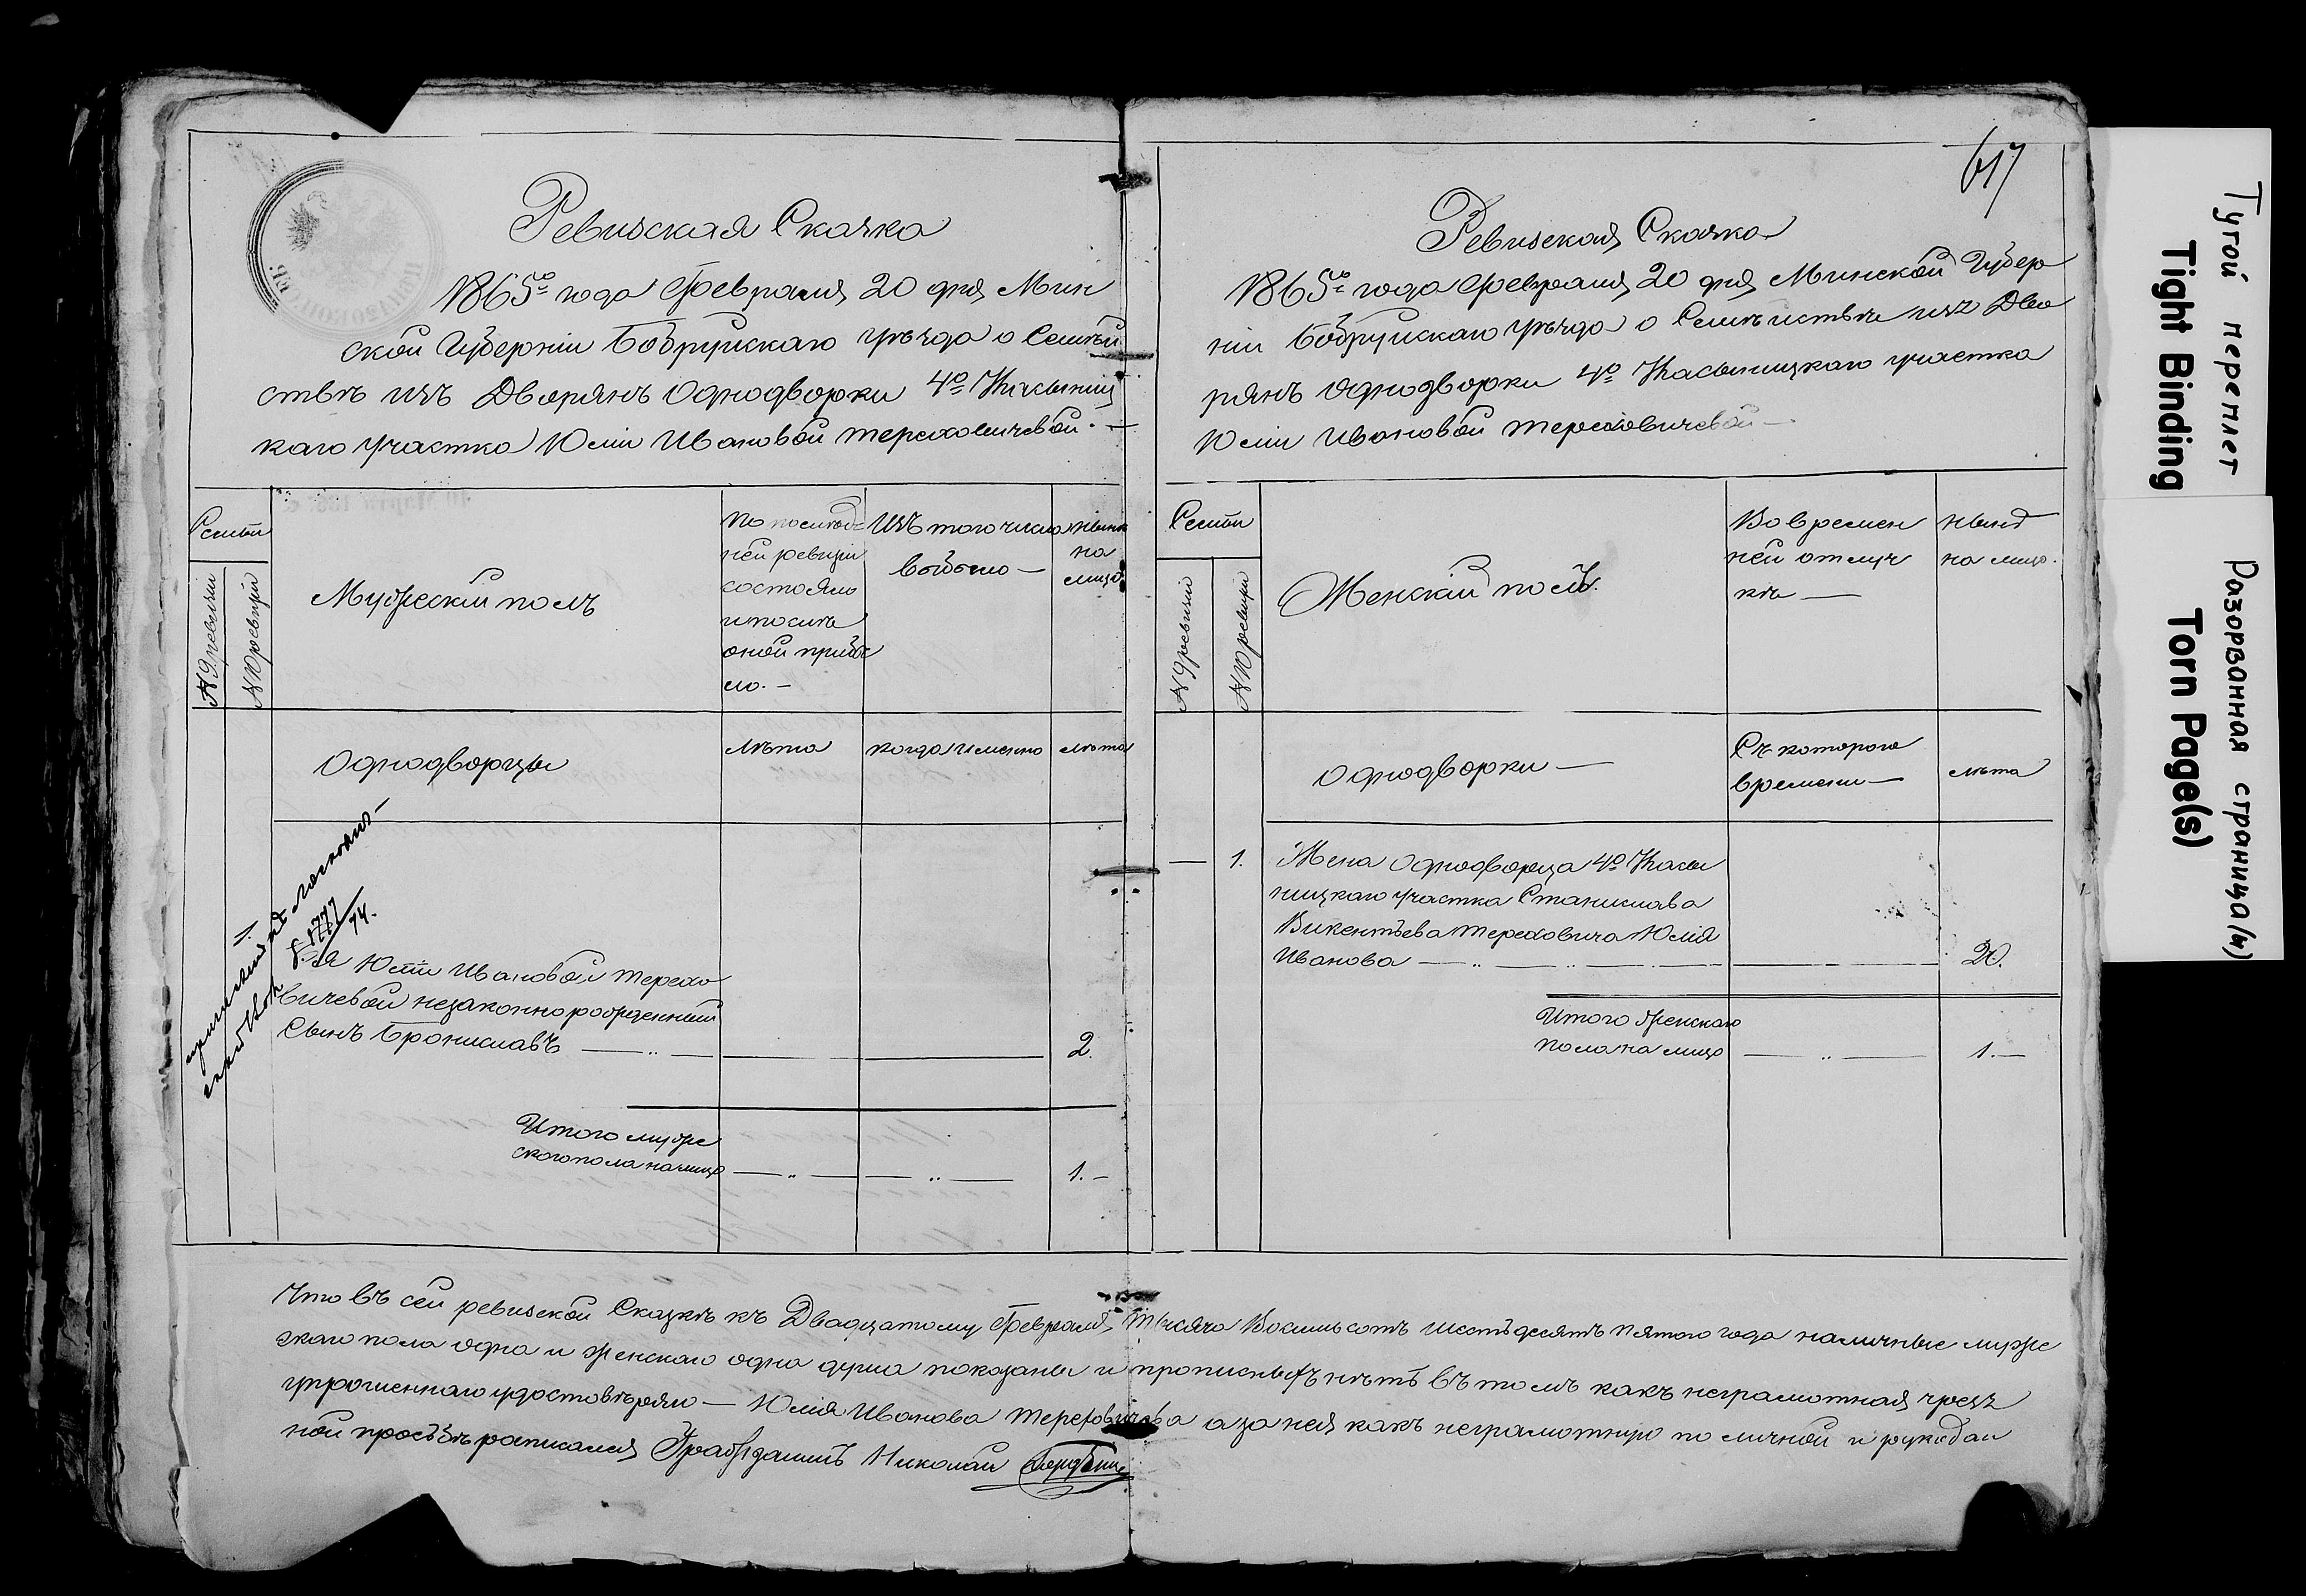 617
Ревизская Сказка
1865го года Февраля 20 дня Мин
ской Губерніи Бобруйскаго уѣзда о Семей
ствѣ изъ Дворянъ Однодворки 4го Касыниц
каго участка Юліи Ивановой Тереховичевой. —
Семьи
№ 9 ревизіи
№ 10 ревизіи
Мужескій полъ
По послѣд
ней ревизіи
состояло
и послѣ
оной прибы
ло. —
Изъ того числа
выбыло —
нынѣ
на
лицо
Однодворцы
лѣта
когда именно
лѣта
1.
1777
74.
Юліи Ивановой Терехо
вичевой незаконнорожденный
Сынъ Брониславъ — „ —
2.
Итого муже
скаго пола налицо — „ — — „ — 1. —
Ревизская Сказка
1865го года Февраля 20 дня Минской Губер
ніи Бобруйскаго уѣзда о Семействѣ изъ Дво
рянъ Однодворки 4го Касыницкаго участка
Юліи Ивановой Тереховичевой —
Семьи
№ 9 ревизіи
№ 10 ревизіи
Женскій полъ.
Во времен
ной отлуч
кѣ —
нынѣ
на лицо.
Однодворки —
Съ котораго
времени —
лѣта
— 1. Жена Однодворца 4го Касы
ницкаго участка Станислава
Викентьева Тереховича Юлія
Иванова — „ — „ — 20.
Итого женскаго
пола на лицо — „ — 1. —
Что въ сей ревизской Сказкѣ къ Двадцатому Февраля Тысяча Восемьсотъ шестьдесятъ пятого года наличные муже
скаго пола одна и женскаго одна душа показаны и прописныхъ нѣтъ въ томъ какъ неграмотная чрезъ
упрошеннаго удостовѣряю — Юлія Иванова Тереховичева а за нея какъ неграмотную по личной и рукодан
ной просьбѣ расписался Гражданинъ Николай
Тугой переплет
Tight Binding
Разорванная страница(ы)
Torn Page(s)